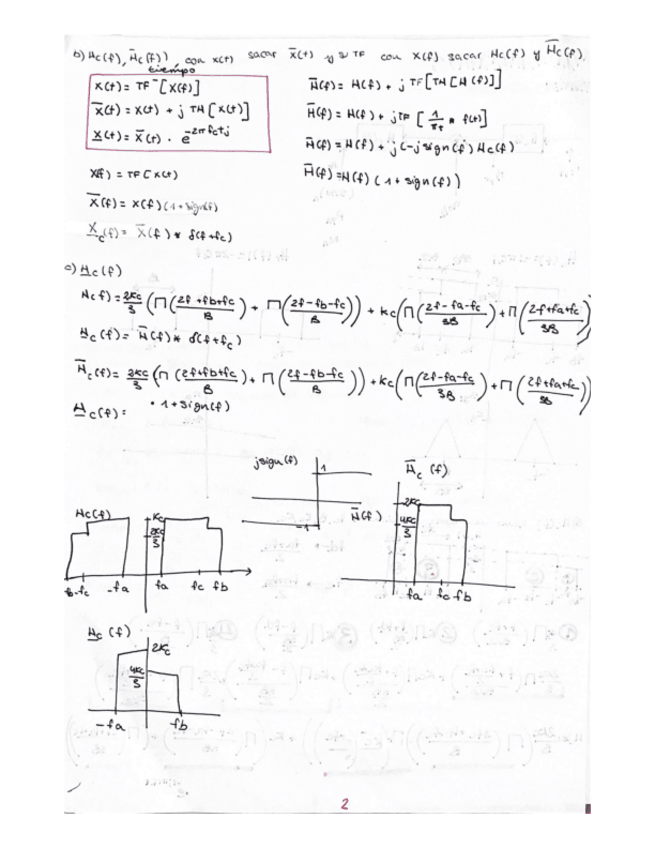 b) Hc(f), H̄c(f)) con x(t) sacar x̄(t) y su TF con x(f) sacar Hc(f) y H̄c(f).
tiempo
x(t) = TF⁻[X(f)]
x̄(t) = x(t) + j TH [x(t)]
x̲(t) = x̄(t) · e^-2πfctj
H̄(f) = H(f) + j TF[TH[H(f)]]
H̄(f) = H(f) + jTF [1/πt * f(t)]
H̄(f) = H(f) + j(-jsign(f)) Hc(f)
H̄(f) = H(f) (1 + sign(f))
X(f) = TF[x(t)
X̄(f) = X(f)(1+sign(f)
X̲c(f) = X̄(f) * δ(f+fc)
c) H̲c(f)
Hc f) = 2Kc/3 (Π(2f+fb+fc/B) + Π(2f-fb-fc/B)) + Kc(Π(2f-fa-fc/3B) + Π(2f+fa+fc/3B))
H̲c(f) = H̄(f) * δ(f+fc)
H̄c(f) = 2Kc/3 (Π(2f+fb+fc/B) + Π(2f-fb-fc/B)) + Kc(Π(2f-fa-fc/3B) + Π(2f+fa+fc/3B))
· 1+sign(f)
H̲c(f) =
jsign(f)
1
-1
H̄(f)
H̄c(f)
2Kc
4Kc/3
fa fc fb
Hc(f)
Kc
2Kc/3
-fc -fa fa fc fb
H̲c(f)
2Kc
4Kc/3
-fa fb
2